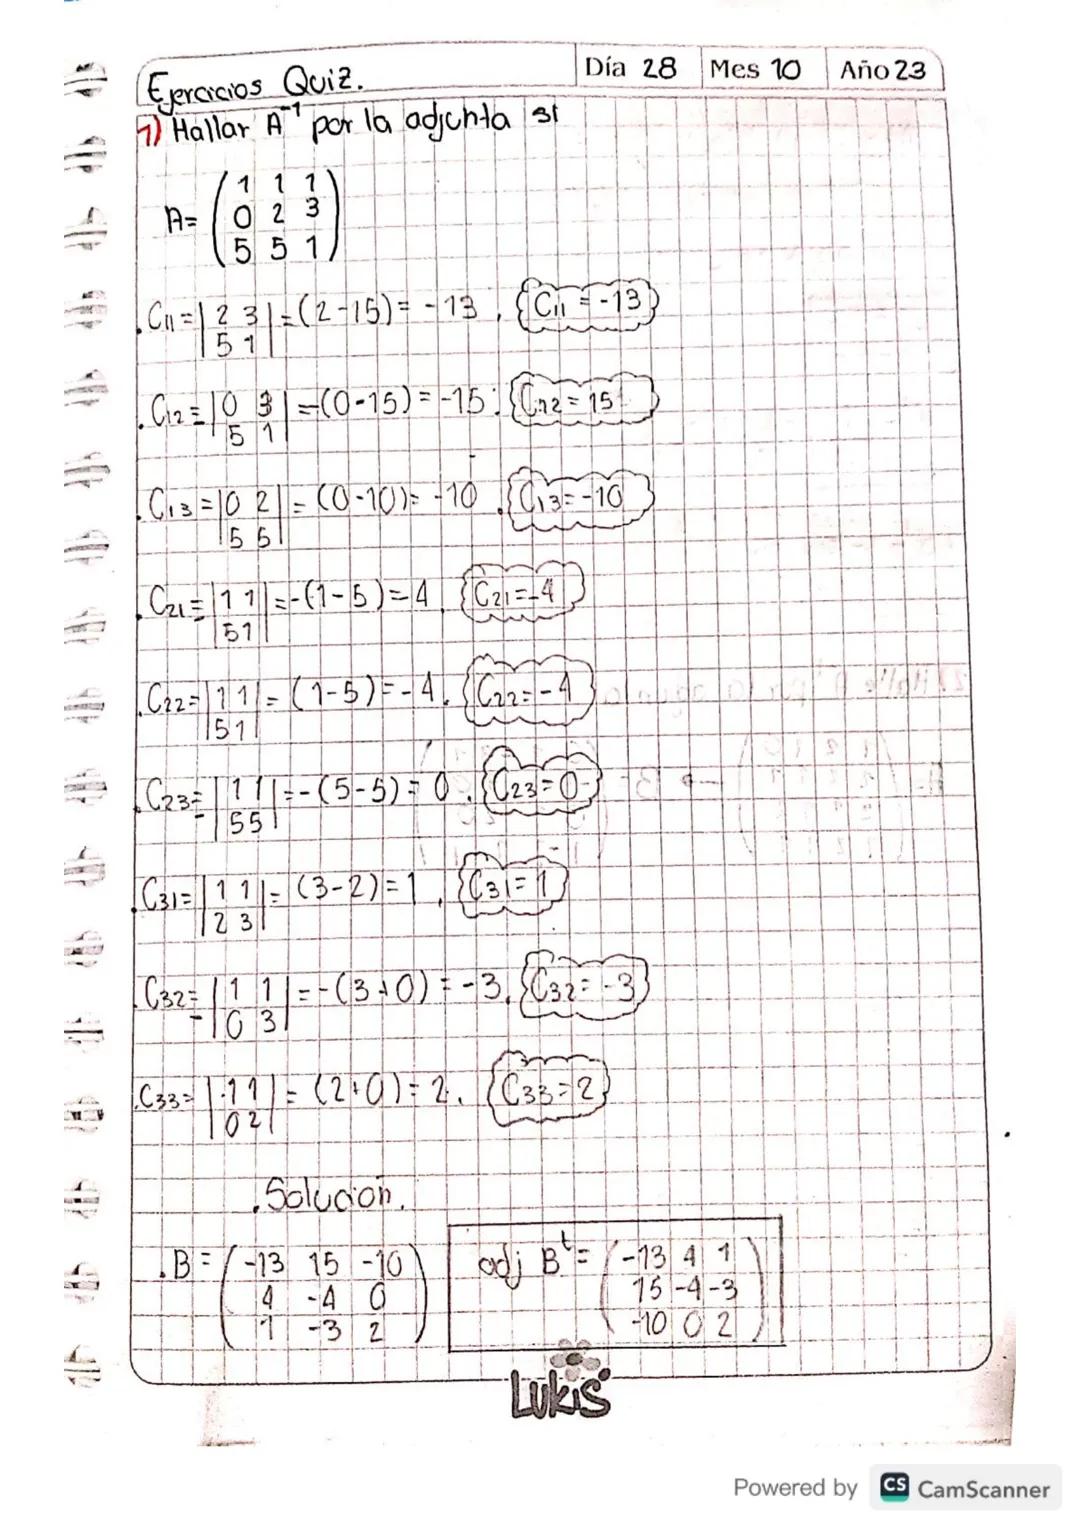 Ejercicios Quiz.
Día 28 Mes 10 Año 23
1) Hallar A⁻¹ por la adjunta si
A= (1 1 1
0 2 3
5 5 1)
. C11 = |2 3| = (2-15) = -13 . C11 = -13
|5 1|
. C12 = |0 3| = -(0-15) = -15 . C12 = 15
|5 1|
. C13 = |0 2| = (0-10) = -10 . C13 = -10
|5 5|
. C21 = |1 1| = -(1-5) = 4 . C21 = -4
|5 1|
. C22 = |1 1| = (1-5) = -4 . C22 = -4
|5 1|
. C23 = |1 1| = -(5-5) = 0 . C23 = 0
- |5 5|
. C31 = |1 1| = (3-2) = 1 . C31 = 1
|2 3|
. C32 = |1 1| = -(3+0) = -3 . C32 = -3
- |0 3|
. C33 = |1 1| = (2+0) = 2 . C33 = 2
|0 2|
. Solución.
. B = (-13 15 -10
4 -4 0
1 -3 2)
adj Bᵗ = (-13 4 1
15 -4 -3
-10 0 2)
LUKIS
Powered by CS CamScanner